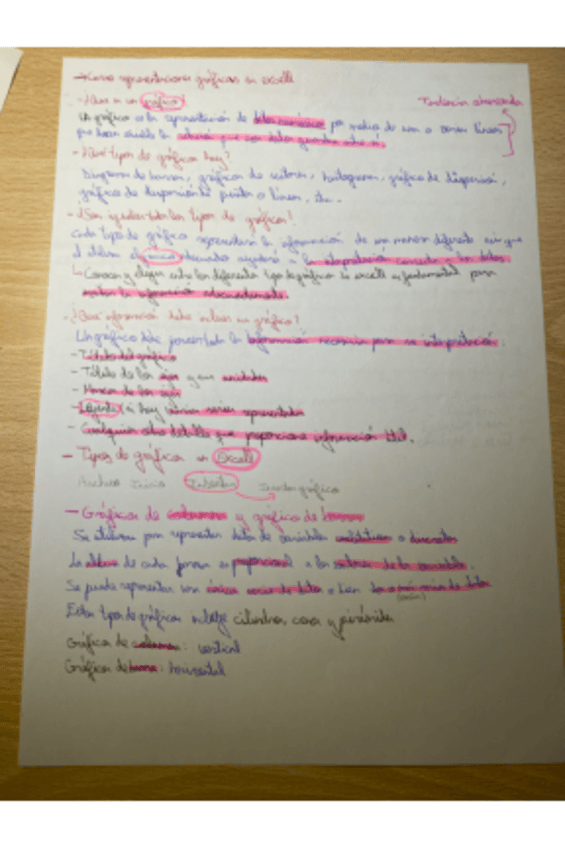 → Como representaciones gráficas en excell
- ¿Que es un gráfico?
Tendencia observada
Un gráfico es la representación de datos numéricos por medio de una o varias líneas
que hacen visible la relación que esos datos guardan entre sí.
- ¿Qué tipos de gráficos hay?
Diagrama de barras, gráficos de sectores, histograma, gráfico de dispersión,
gráfico de dispersión de puntos o líneas, etc.
- ¿Son iguales todos los tipos de gráficos?
Cada tipo de gráfico representará la información de una manera diferente así que
el utilizar el adecuado ayudará a la interpretación correcta de los datos
↳ Conocer y elegir entre los diferentes tipos de gráficos de excell es fundamental para
mostrar la información adecuadamente.
- ¿Qué información debe incluir un gráfico?
Un gráfico debe presentar toda la información necesaria para su interpretación.
- Título del gráfico
- Título de los ejes y sus unidades
- Marcas de los ejes
- Leyenda (si hay varias series representadas
- Cualquier otro detalle que proporcione información útil.
- Tipos de gráfica en Excell
Archivo Inicio Insertar Insertar gráfico
- Gráficos de columnas y gráfico de barras
Se utilizan para representar datos de variables cualitativas o discretas
La altura de cada barra es proporcional a los valores de la variable.
Se puede representar una única serie de datos o bien dos o más series de datos
Estos tipos de gráficos incluye cilindros, conos y pirámides
Gráfico de columnas: vertical
Gráfico de barras: horizontal